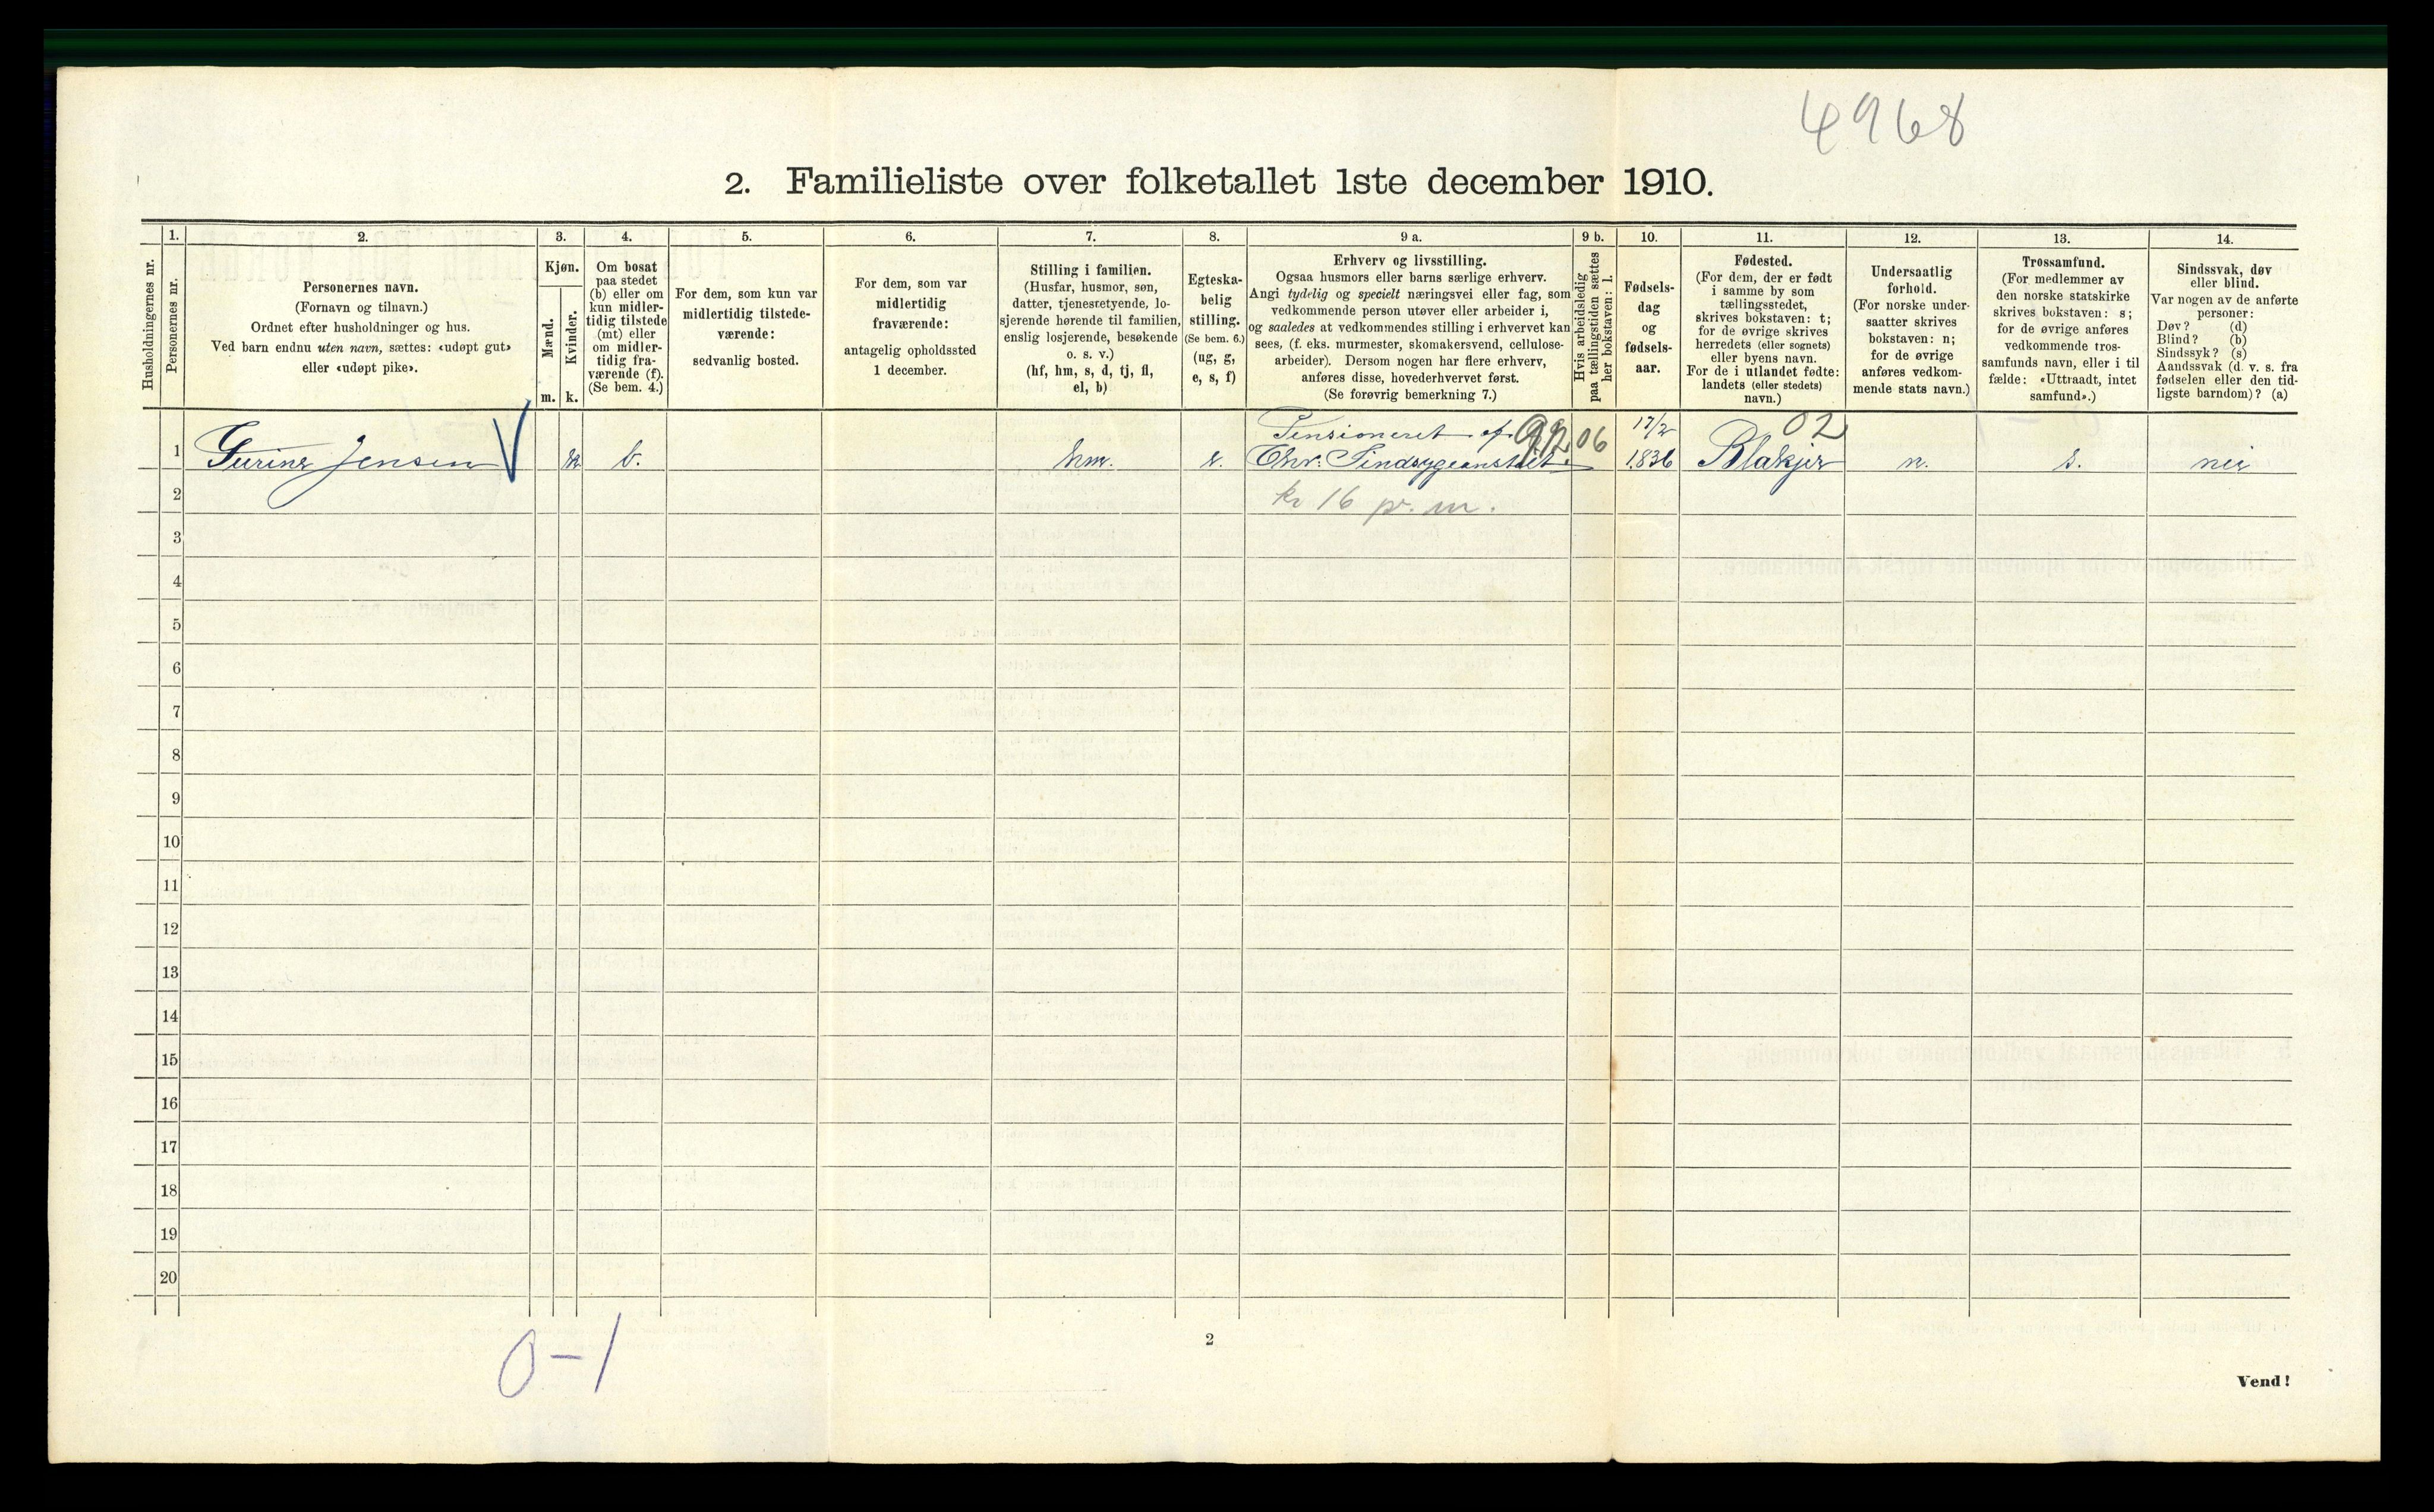 4968
2. Familieliste over folketallet 1ste december 1910.
Husholdningernes nr.
1.
Personernes nr.
2.
Personernes navn.
(Fornavn og tilnavn.)
Ordnet efter husholdninger og hus.
Ved barn endnu uten navn, sættes: «udøpt gut»
eller «udøpt pike».
3.
Kjøn.
Mænd.
Kvinder.
m. k.
4.
Om bosat
paa stedet
(b) eller om
kun midler-
tidig tilstede
(mt) eller
om midler-
tidig fra-
værende (f).
(Se bem. 4.)
5.
For dem, som kun var
midlertidig tilstede-
værende:
sedvanlig bosted.
6.
For dem, som var
midlertidig
fraværende:
antagelig opholdssted
1 december.
7.
Stilling i familien.
(Husfar, husmor, søn,
datter, tjenestetyende, lo-
sjerende hørende til familien,
enslig losjerende, besøkende
o. s. v.)
(hf, hm, s, d, tj, fl,
el, b)
8.
Egteska-
belig
stilling.
(Se bem. 6.)
(ug, g,
e, s, f)
9 a.
Erhverv og livsstilling.
Ogsaa husmors eller barns særlige erhverv.
Angi tydelig og specielt næringsvei eller fag, som
vedkommende person utøver eller arbeider i,
og saaledes at vedkommendes stilling i erhvervet kan
sees, (f. eks. murmester, skomakersvend, cellulose-
arbeider). Dersom nogen har flere erhverv,
anføres disse, hovederhvervet først.
(Se forøvrig bemerkning 7.)
9 b.
Hvis arbeidsledig
paa tællingstiden sættes
her bokstaven: l.
10.
Fødsels-
dag
og
fødsels-
aar.
11.
Fødested.
(For dem, der er født
i samme by som
tællingsstedet,
skrives bokstaven: t;
for de øvrige skrives
herredets (eller sognets)
eller byens navn.
For de i utlandet fødte:
landets (eller stedets)
navn.)
12.
Undersaatlig
forhold.
(For norske under-
saatter skrives
bokstaven: n;
for de øvrige
anføres vedkom-
mende stats navn.)
13.
Trossamfund.
(For medlemmer av
den norske statskirke
skrives bokstaven: s;
for de øvrige anføres
vedkommende tros-
samfunds navn, eller i til
fælde: «Uttraadt, intet
samfund».)
14.
Sindssvak, døv
eller blind.
Var nogen av de anførte
personer:
Døv? (d)
Blind? (b)
Sindssyk? (s)
Aandssvak (d. v. s. fra
fødselen eller den tid-
ligste barndom)? (a)
Pensioneret af 9906 17/2 02
1 Gurine Jensen k b. hm. Chr. Sindsygeanstalt. 1836 Blakjer n. s. nei
2 kr 16 pr. m.
3
4
5
6
7
8
9
10
11
12
13
14
15
16
17
18
19
20
0-1
2
Vend!